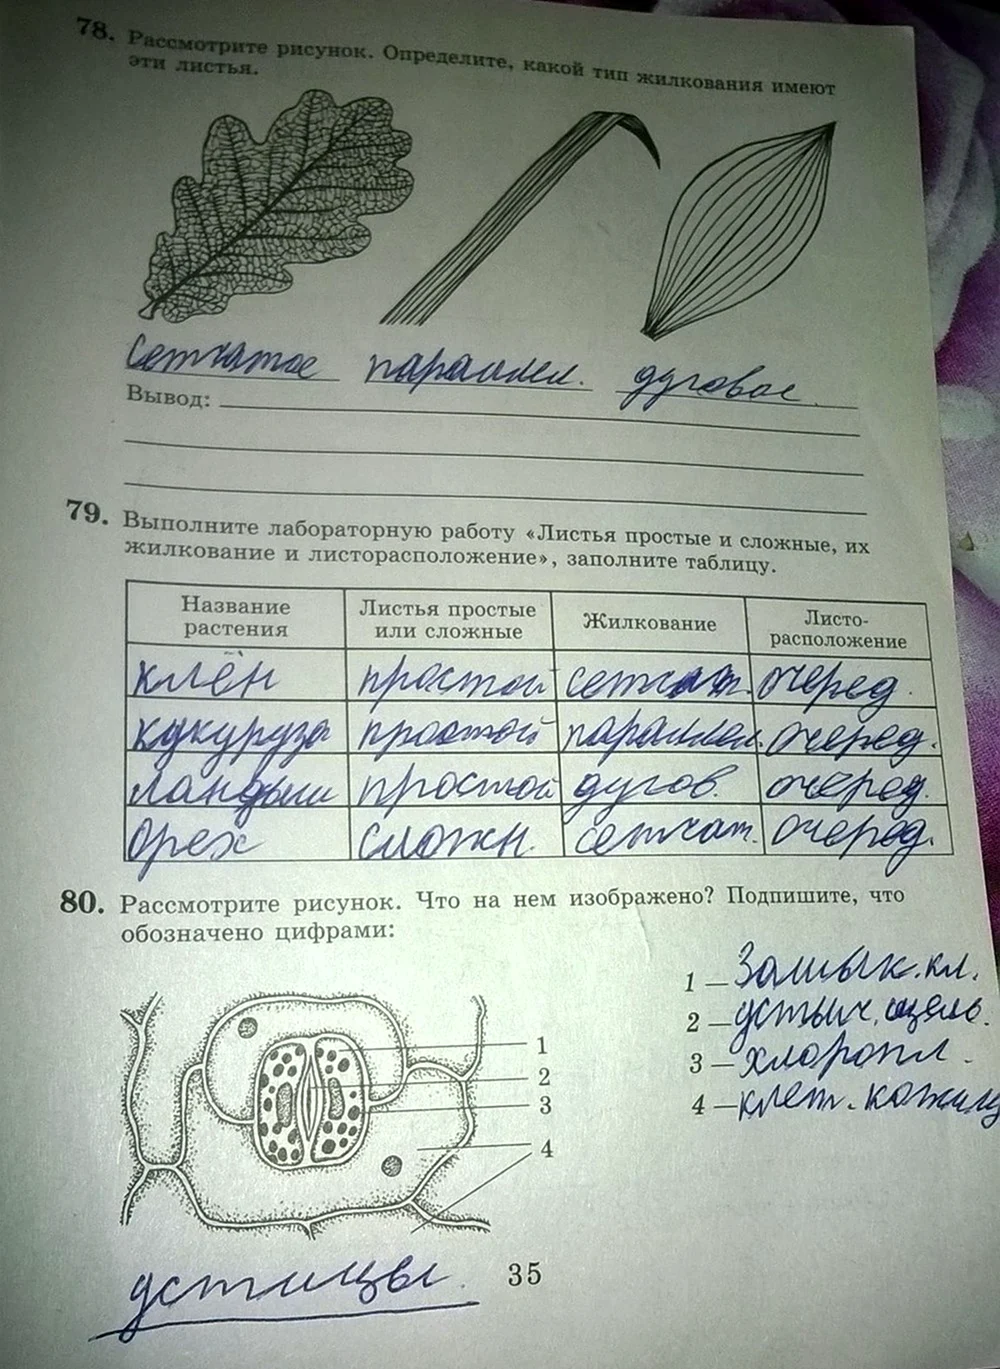 78. Рассмотрите рисунок. Определите, какой тип жилкования имеют
эти листья.
сетчатое параллел. дуговое
Вывод:
79. Выполните лабораторную работу «Листья простые и сложные, их
жилкование и листорасположение», заполните таблицу.
Название растения Листья простые или сложные Жилкование Листо-расположение
клён простой сетчат. очеред.
кукуруза простой параллел. очеред.
ландыш простой дугов. очеред.
орех сложн. сетчат. очеред.
80. Рассмотрите рисунок. Что на нем изображено? Подпишите, что
обозначено цифрами:
1 – Замык. кл.
2 – устьич. щель.
3 – хлоропл.
4 – клет. кожиц
1
2
3
4
устицы
35